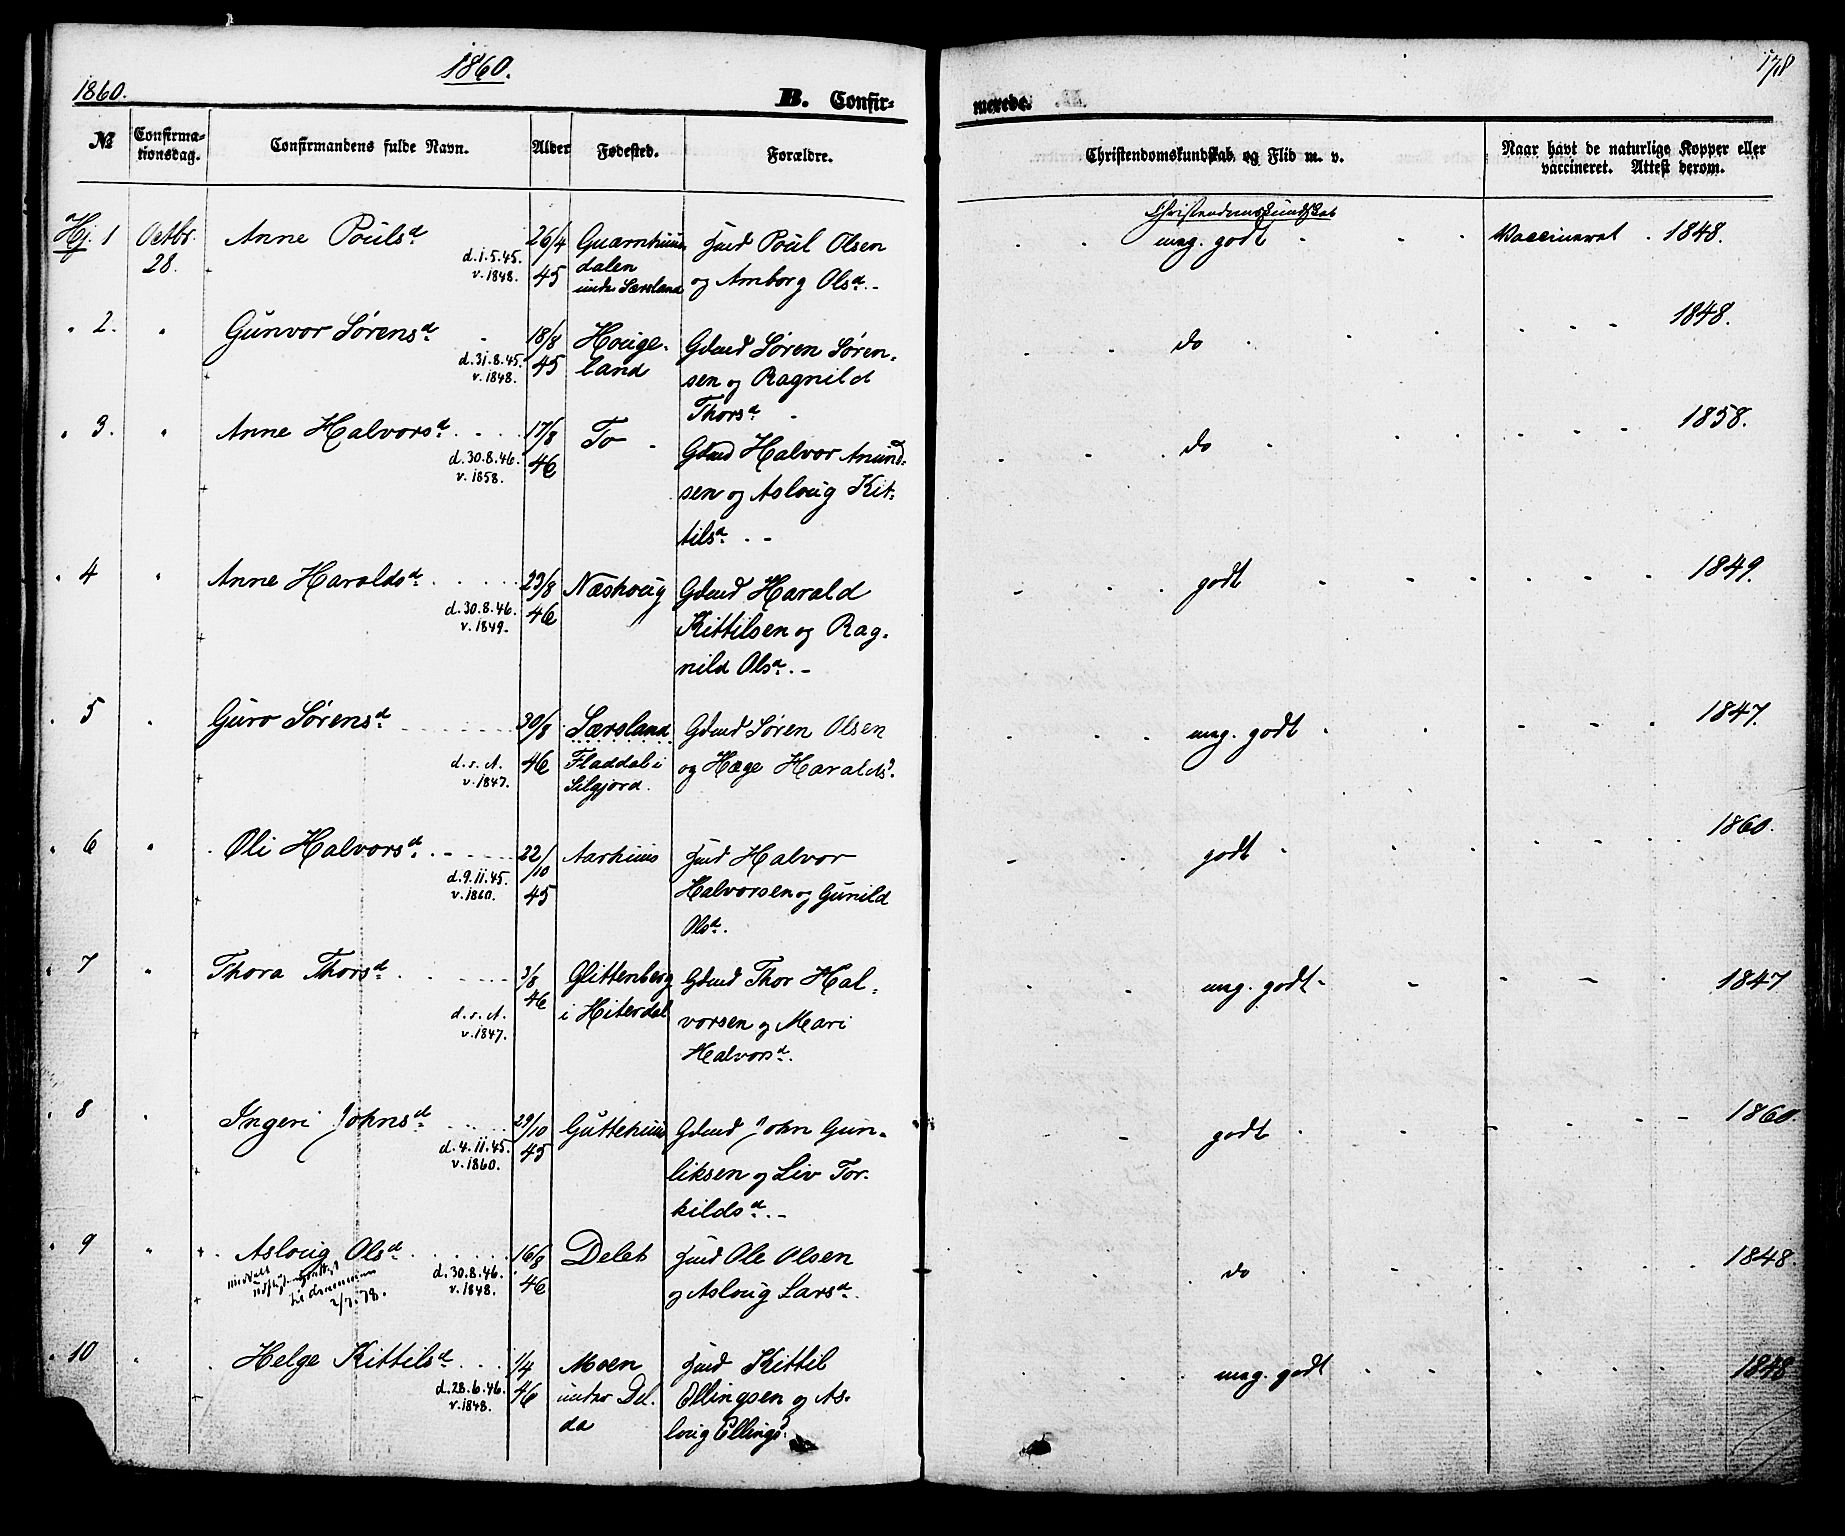 1860.
178
1860.
B. Confir-
merede.
№
Confirma-
tionsdag.
Confirmandens fulde Navn.
Alder
Fødested.
Forældre.
Christendomskundskab og Flid m. v.
Naar havt de naturlige Kopper eller
vaccineret. Attest derom.
Christendomskundskab
Hj. 1 Octbr. 28. Anne Pouls d. d. 1.5.45. v. 1848. 26/4 45
dalen
under Særsland
Poul Olsen
og Amborg Olsd. -
meg. godt Vaccineret 1848.
" 2. " Gunvor Sørensd. d. 31.8.45. v. 1848. 18/8 45
Houge-
land
Søren Søren-
sen og Ragnild
Thorsd. -
do 1848.
" 3. " Anne Halvorsd. d. 30.8.46. v. 1858. 17/8 46
To -
Halvor Anund-
sen og Asloug Kit-
tilsd. - -
do 1858.
" 4 " Anne Haraldsd. d. 30.8.46. v. 1849. 23/8 46
Næshoug
Harald
Kittilsen og Rag-
nild Olsd. -
godt 1849.
" 5 " Guro Sørensd. d. s. A. v. 1847. 30/8 46
Særsland
Fladdal i
Silgjord.
Søren Olsen
og Hæge Haraldsd.
meg. godt 1847.
" 6 " Oli Halvorsd. d. 9.11.45. v. 1860. 22/10 45
Aarhuus
Halvor
Halvorsen og Gunild
Olsd.
godt 1860.
" 7 " Thora Thorsd. d. s. A. v. 1847. 3/8 46
Glittenberg
i Hiterdal
Thor Hal-
vorsen og Mari
Halvorsd.
meg. godt 1847
" 8 " Ingeri Johnsd. d. 4.11.45. v. 1860. 29/10 45
Guttehuus
John Gun-
liksen og Liv Tor-
kildsd. -
godt 1860.
" 9 " Asloug Olsd. d. 30.8.46. v. 1848. 16/8 46
2/7.78.
Delet
Ole Olsen
og Asloug Larsd.
do 1848.
" 10 " Helge Kittilsd. d. 28.6.46. v. 1848. 1/4 46
Moen
under Del-
da
Kittil
Ellingsen og As-
loug Ellingsd.
meg. godt 1848